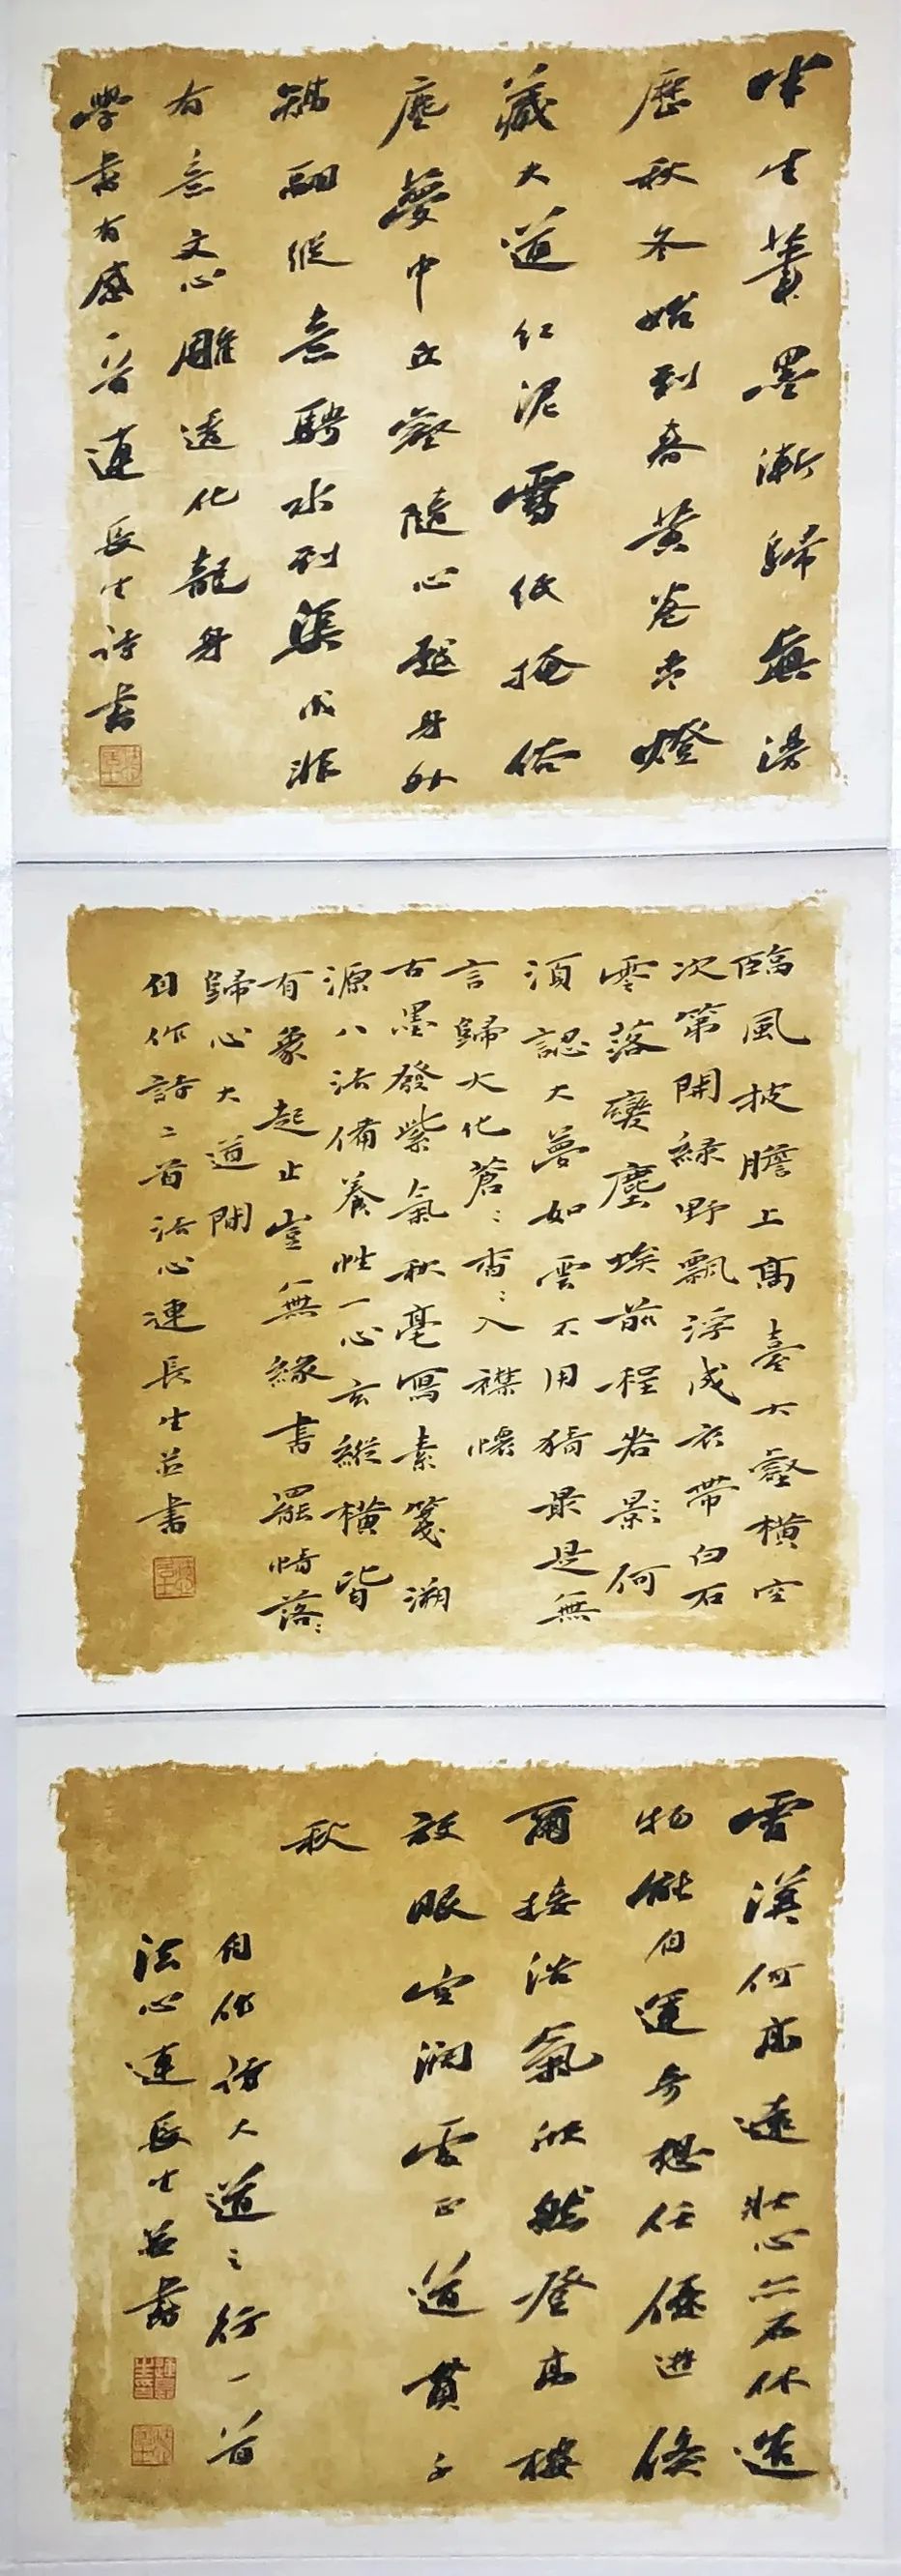 半生華墨漸歸真湯
歷秋冬始到春黃卷青燈
藏大道紅泥雪紙掩俗
塵夢中丘壑隨心越身外
鵝翩縱意騁水到渠成非
有意文心雕透化龍身
學書有感一首連長生詩書
臨風披膽上高臺大壑橫空
次第開綠野飄浮成衣帶白石
零落變塵埃前程若影何
須認大夢如雲不用猜最是無
言歸大化蒼:杳:入襟懷
古墨發紫氣秋毫寫素箋溯
源八法備養性一心玄縱橫皆
有象起止豈無緣書罷情落:
歸心大道閒
自作詩二首法心連長生並書
雲漢何高遠壯心亦不休造
物能自運奇想任優遊倏
爾接浩氣欣然登高樓
放眼空濶處正道貫千
秋
自作詩大道之行一首
法心連長生並書